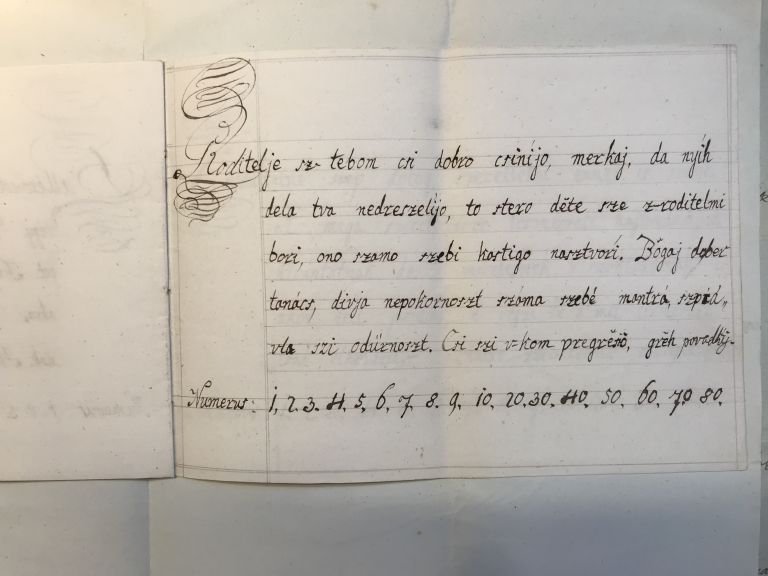 Roditelje sz- tebom csi dobro csinijo, merkaj, da nyih
dela tva nedreszelijo, to stero dête sze z-roditelmi
bori, ono szamo szebi kastigo nasztvori. Bôgaj dober
tanács, divja nepokornoszt száma szebé mantrá, szprá„
vla szi odürnoszt. Csi szi v-kom pregrêsö, grêh povadhij.
Numerus: 1. 2. 3. 4. 5. 6. 7. 8. 9. 10. 20. 30. 40. 50. 60. 70. 80.